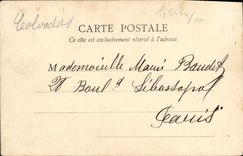 Calvados
CARTE POSTALE
Ce côté est exclusivement réservé à l'adresse
Mademoiselle Marie Baudet
28 Boul d Sébastopol
Paris